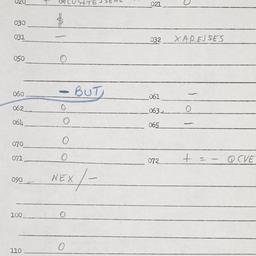 020 021 0
030 $
031 — 032 XADEJSES
050 0
060 — BUT 061 —
062 0 063 0
064 0 065 —
070 0
071 0 072 + = - QCVE
090 NEX/-
100 0
110 0